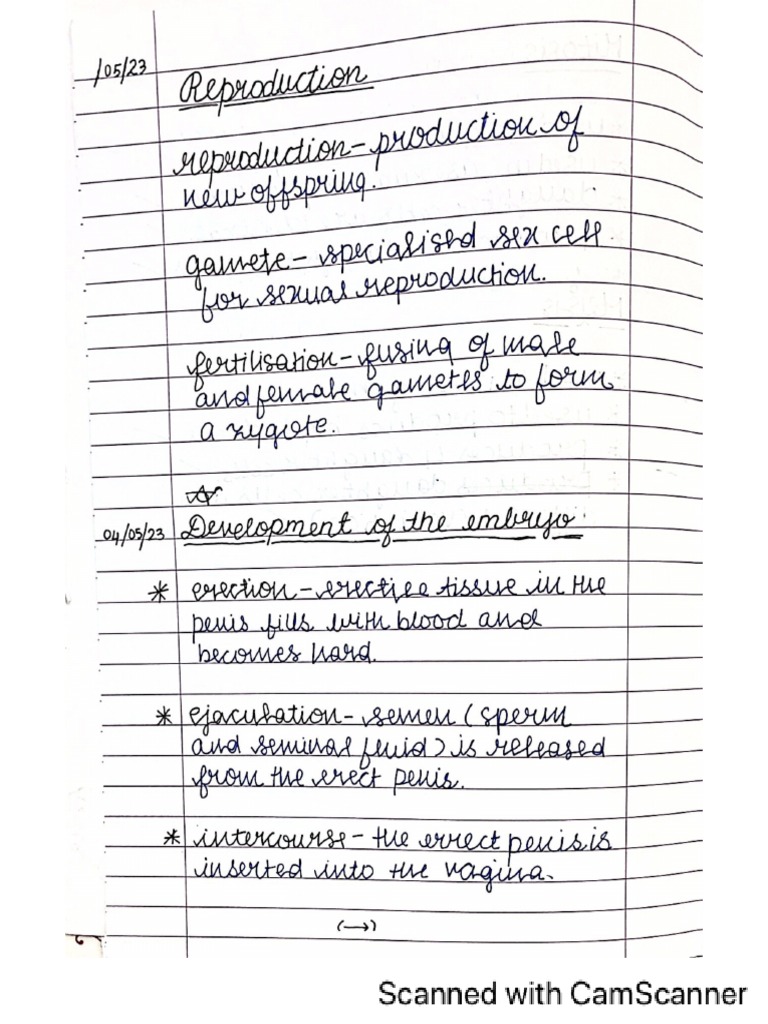 /05/23 Reproduction
reproduction - production of
new offspring.
gamete - specialised sex cell
for sexual reproduction.
fertilisation - fusing of male
and female gametes to form
a zygote.
04/05/23 Development of the embryo
* erection - erectile tissue in the
penis fills with blood and
becomes hard.
* ejaculation - semen (sperm
and seminal fluid) is released
from the erect penis.
* intercourse - the errect penis is
inserted into the vagina.
(→)
Scanned with CamScanner